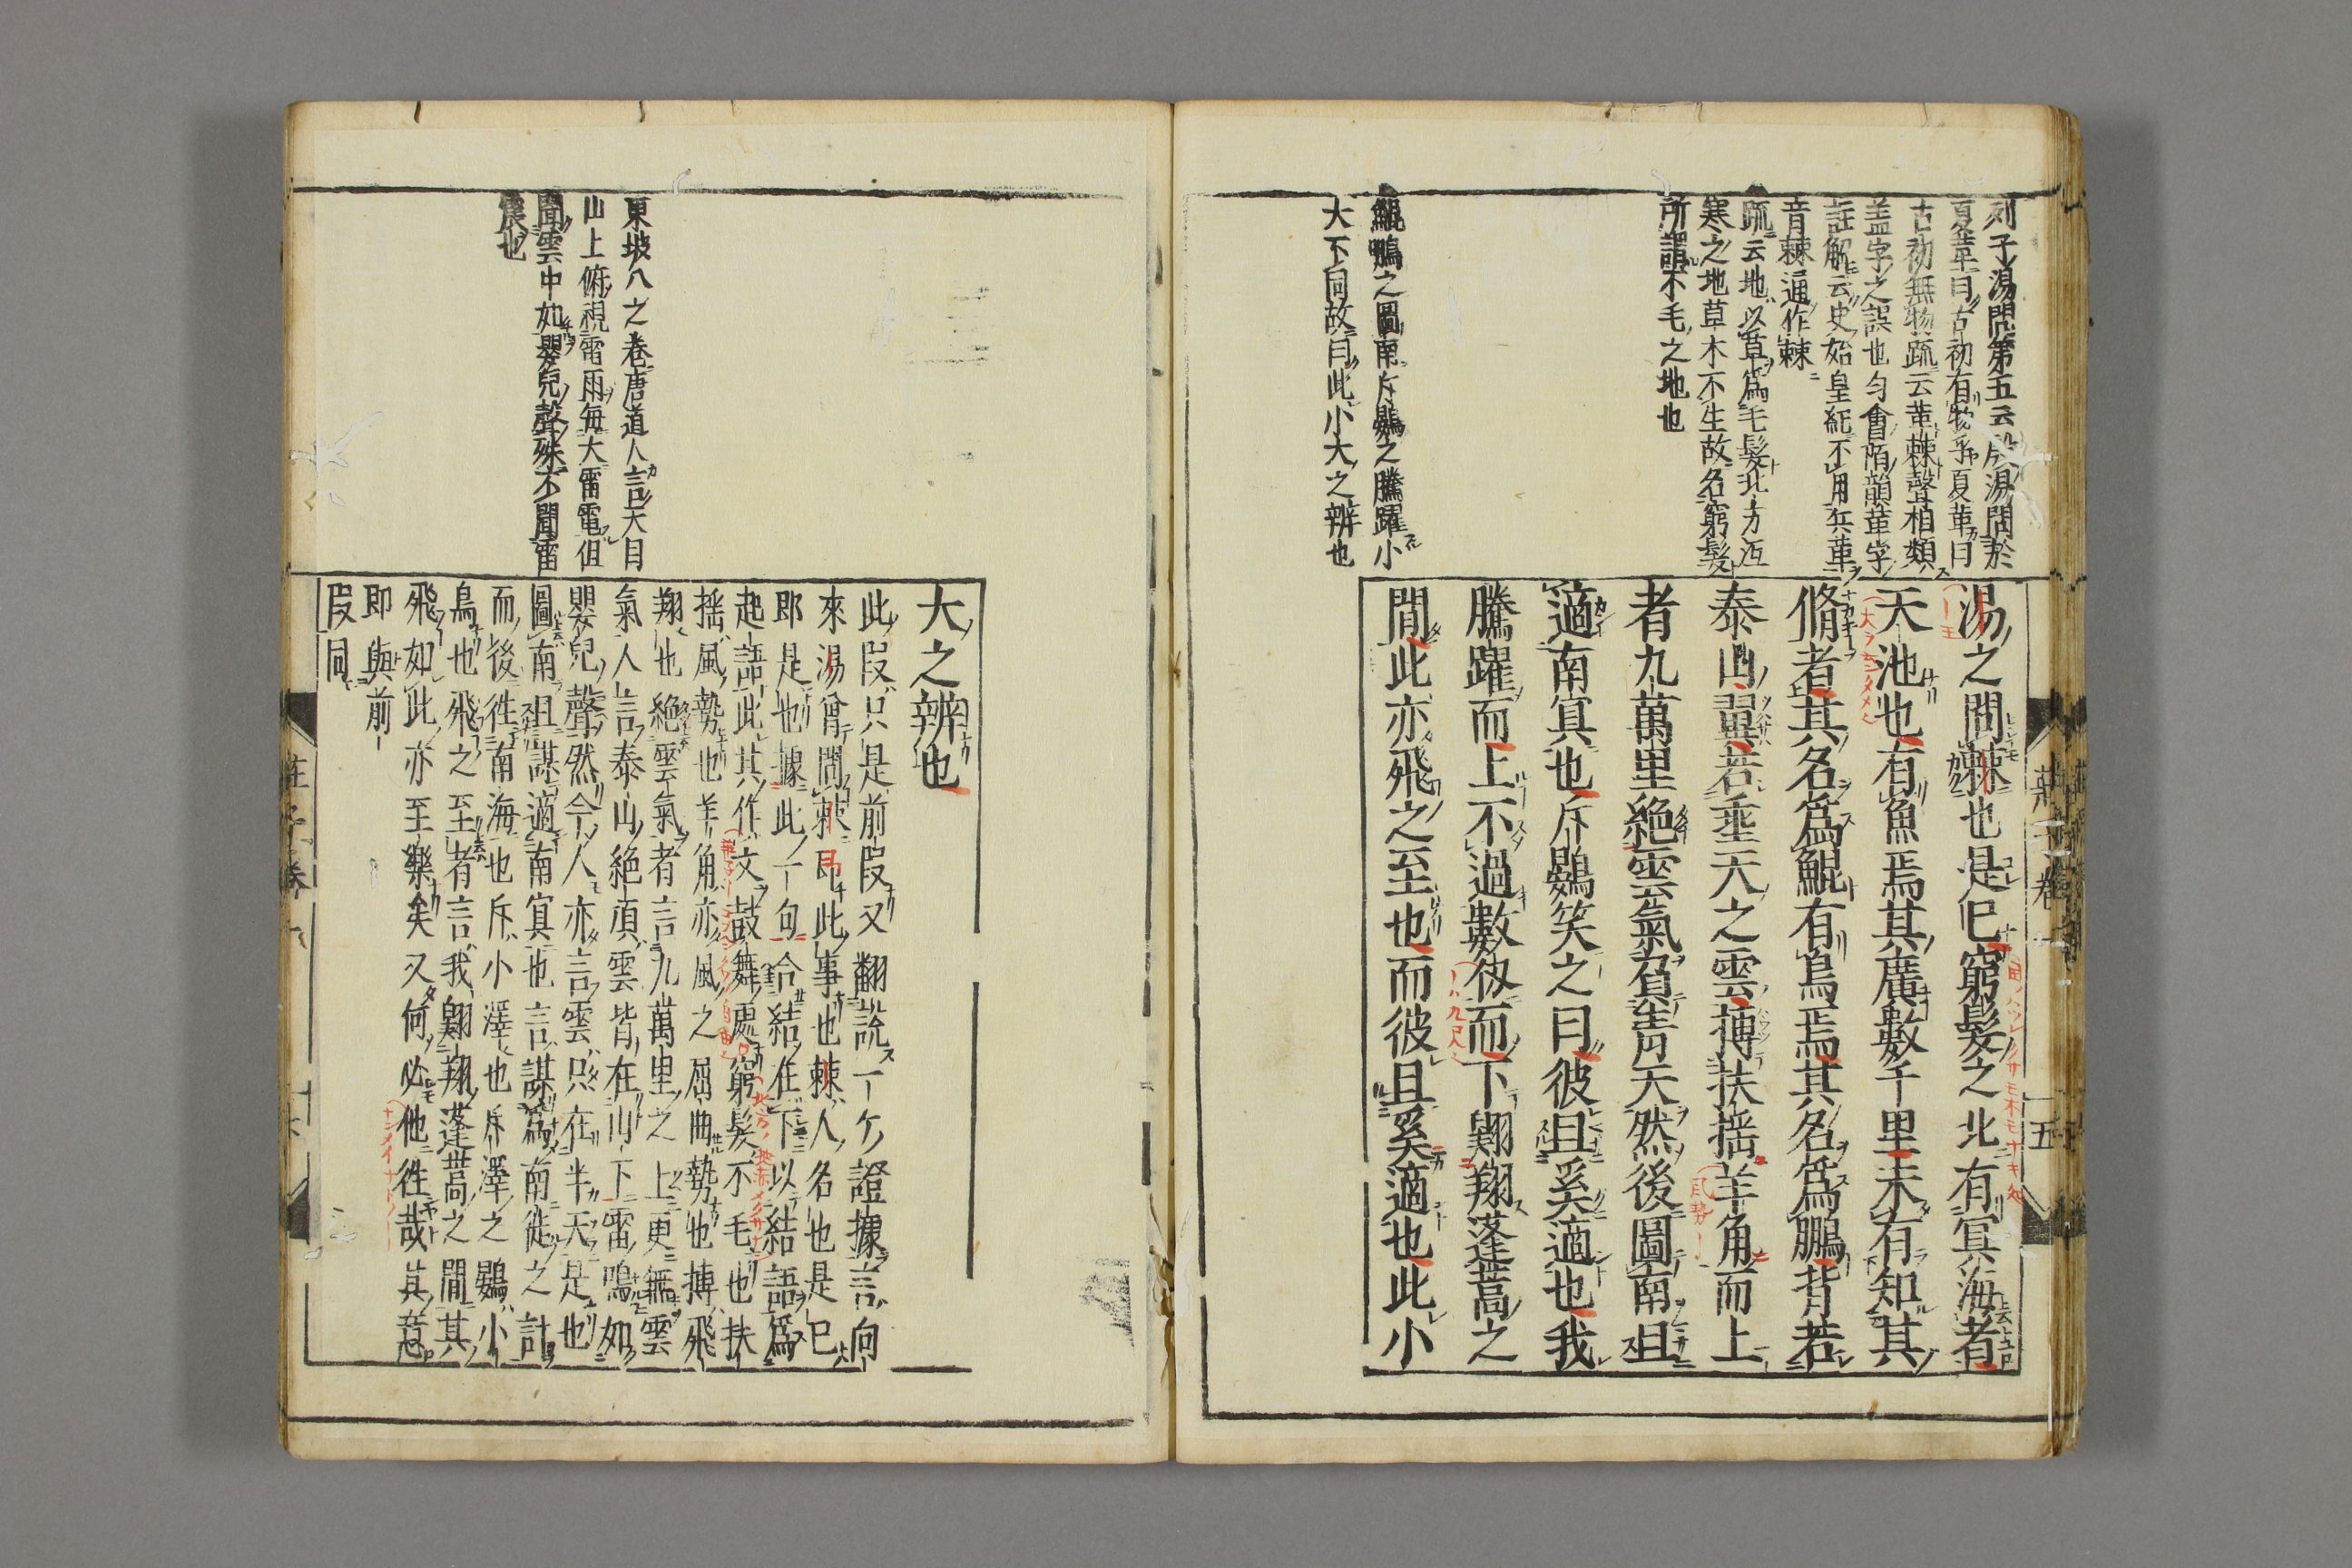 列子湯問第五云殷湯問於
夏革曰古初有物乎夏革曰
古初無物疏云革棘聲相類
蓋字之誤也匀會陌韻革字
註解云史始皇紀不用兵革
音棘通作棘
疏云地以草為毛髮北方沍
寒之地草木不生故名窮髮
所謂不毛之地也
鯤鵬之圖南斥鷃之騰躍小
大不同故曰此小大之辨也
湯之問棘也是已窮髮之北有冥海者
天池也有魚焉其廣數千里未有知其
脩者其名為鯤有鳥焉其名為鵬背若
泰山翼若垂天之雲摶扶搖羊角而上
者九萬里絕雲氣負青天然後圖南且
適南冥也斥鷃笑之曰彼且奚適也我
騰躍而上不過數仞而下翱翔蓬蒿之
間此亦飛之至也而彼且奚適也此小
莊子卷一
五
東坡八之卷唐道人言天目
山上俯視雷雨每大雷電但
聞雲中如嬰兒聲殊不聞雷
震也
大之辨也
此段只是前段又翻說一ケ證據言向
來湯曾問棘即此事也棘人名也是已
即是也據此一句合結在下以結語為
起語此其作文鼓舞處窮髮不毛也扶
搖風勢也羊角亦風之屈曲勢也摶飛
翔也絕雲氣者言九萬里之上更無雲
氣人言泰山絕頂雲皆在山下雷鳴如
嬰兒聲然今人亦言雲只在半天是也
圖南且謀適南冥也言謀為南徙之計
而後徃南海也斥小澤也斥澤之鷃小
鳥也飛之至者言我翱翔蓬蒿之間其
飛如此亦至樂矣又何必他徃哉其意
即與前
段同
莊子卷一